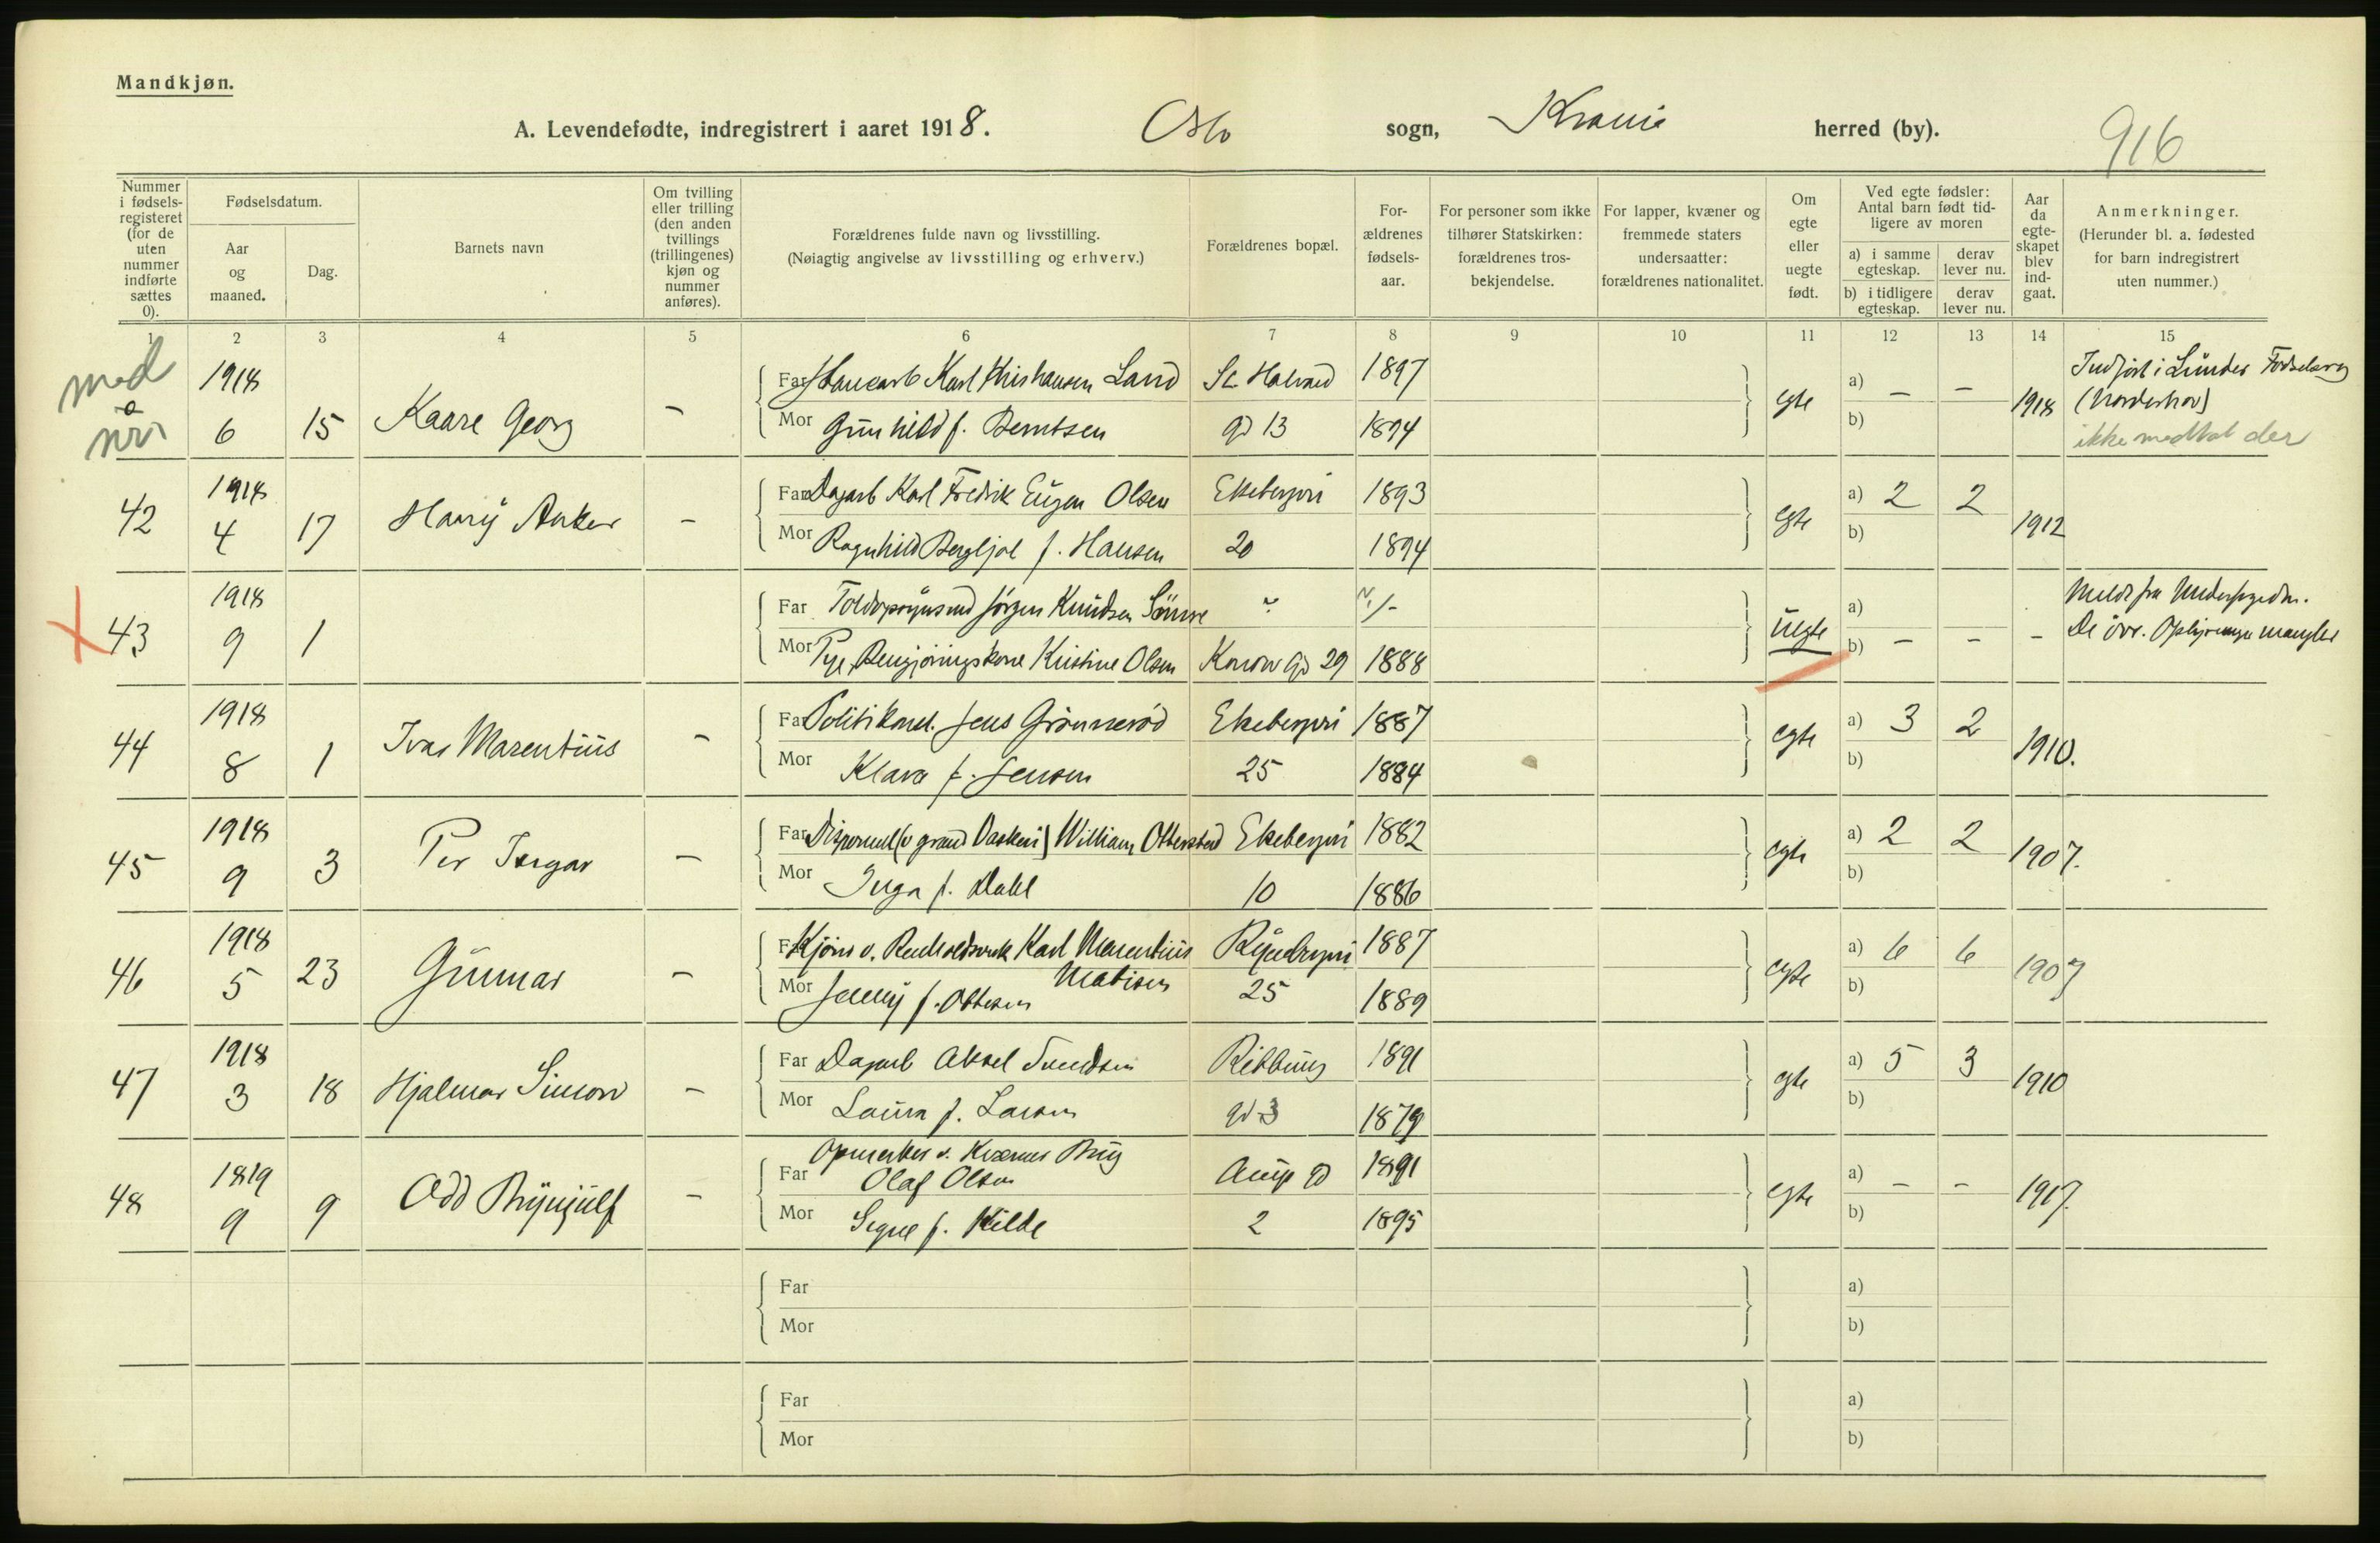 Mandkjøn.
A. Levendefødte, indregistrert i aaret 1918. Oslo sogn, Krania herred (by). 916
Nummer i fødsels-registeret (for de uten nummer indførte sættes 0).
Fødselsdatum.
Aar og maaned.
Dag.
Barnets navn
Om tvilling eller trilling (den anden tvillings (trillingenes) kjøn og nummer anføres).
Forældrenes fulde navn og livsstilling.
(Nøiagtig angivelse av livsstilling og erhverv.)
Forældrenes bopæl.
For-ældrenes fødsels-aar.
For personer som ikke tilhører Statskirken: forældrenes tros-bekjendelse.
For lapper, kvæner og fremmede staters undersaatter: forældrenes nationalitet.
Om egte eller uegte født.
Ved egte fødsler: Antal barn født tid-ligere av moren
a) i samme egteskap. derav lever nu.
b) i tidligere egteskap. derav lever nu.
Aar da egte-skapet blev ind-gaat.
Anmerkninger.
(Herunder bl. a. fødested for barn indregistrert uten nummer.)
1 2 3 4 5 6 7 8 9 10 11 12 13 14 15
med 1918 Far Karl Kristiansen Land St Halvard 1897 a) – –
0 6 15 Kaare Georg – Mor Gunhild f. Berntsen gd 13 1894 egte b) 1918 (Norderhov)
ikke medtat der
1918 Far Dagarb Karl Fredrik Eugen Olsen Ekebergvei 1893 a) 2 2
42 4 17 Harry Anker – Mor Ragnhild Bergljot f. Hansen 20 1894 egte b) 1912
1918 Far Jørgen Knudsen ~ a) Meldt fra
43 9 1 Mor Rengjøringskone Kristine Olsen Konow Gd 29 1888 uegte b) – – – De øvr. Oplysninger mangler
1918 Far Politikonst. Jens Grønnerød Ekebergvei 1887 a) 3 2
44 8 1 Ivar Marentius – Mor Klara f. Jensen 25 1884 egte b) 1910.
1918 Far William Otterstad Ekebergvei 1882 a) 2 2
45 9 3 Per Ingar – Mor Inga f. Dahl 10 1886 egte b) 1907.
1918 Far Kjører v. Karl Marentius Ryenbergvei 1887 a) 6 6
46 5 23 Gunnar – Mor Jenny f. Ottesen Matisen 25 1889 egte b) 1907
1918 Far Dagarb Aksel Svendsen Ribbung 1891 a) 5 3
47 3 18 Hjalmar Simon – Mor Laura f. Larsen gd 3 1879 egte b) 1910
Opmerker v. Kværner Brug
1819 Far Olaf Olsen gd 1891 a) – –
48 9 9 Odd Brynjulf – Mor Signe f. Kilde 2 1895 egte b) 1917.
Far a)
Mor b)
Far a)
Mor b)